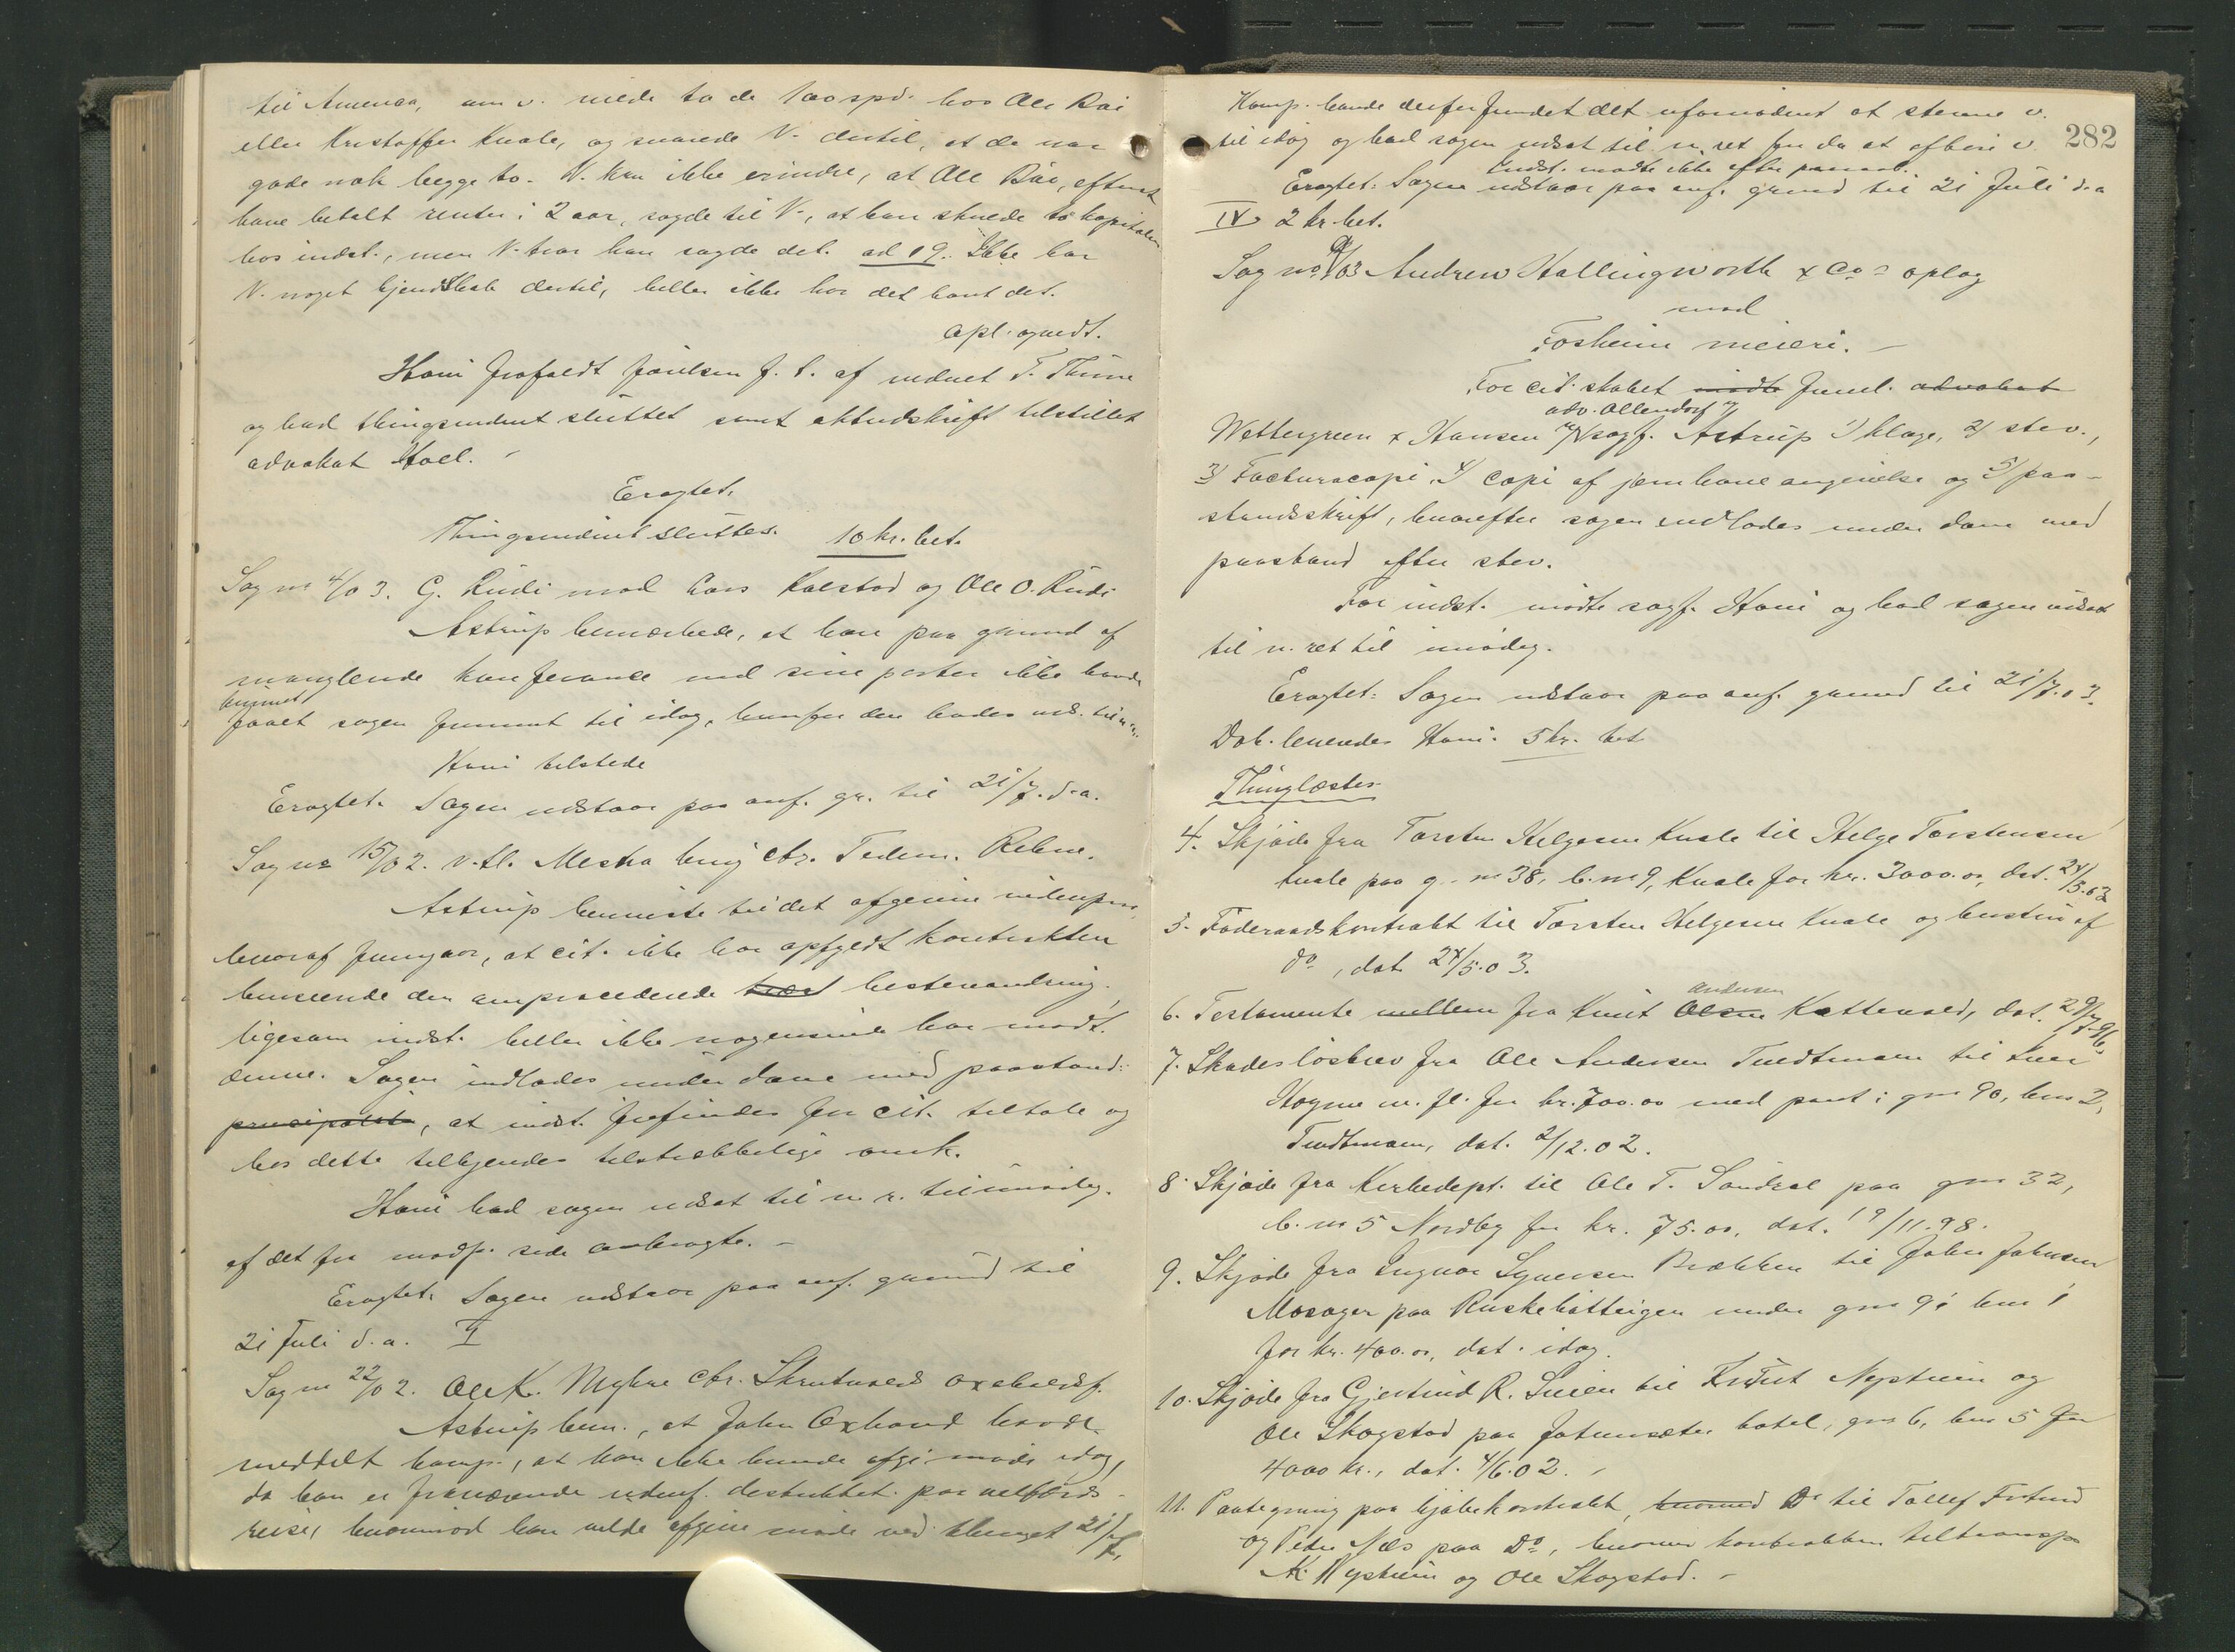 til Amerika, om v. vilde ta de 100 spd. hos Ole Rai
eller Kristoffer Kvale, og svarede V. dertil, at de var
gode nok begge to. V. kan ikke erindre, at Ole Rai, efterat
have betalt renter i 2 aar, sagde til V., at han skulde ta kapitalen
hos indst., men V. tror han sagde det. ad 19. Ikke har
V. noget kjendskab dertil, heller ikke har det hørt det.
opl. vedt.
Hovi frafaldt Poulsen f. t. af vidnet T. Thune
og bad thingsvidnet sluttet samt aktudskrift tilstillet
advokat Hoel.
Eragtet.
Thingsvidnet sluttes. 10 kr. bet.
Sag no 4/03. G. Rudi mod Lars Kalstad og Ole O. Rudi
Astrup bemærkede, at han paa grund af
manglende konferance med sine parter ikke havde
kunnet
faaet sagen fremmet til idag, hvorfor den bades uds. til n. r.
Hovi tilstede
Eragtet. Sagen udstaar paa anf. gr. til 21/7. d.a.
Sag no 15/02. v. tl. Mestra brug ctr. Tedem. Rebne.
Astrup henviste til det afgivne vidnepro.
hvoraf fremgaar, at cit. ikke har opfyldt kontrakten
henseende den omprocederede hestevandring.
ligesom indst. heller ikke nogensinde har modt.
denne. Sagen indlades under dom med paastand:
principalité, at indst. frifindes for cit. tiltale og
hos dette tilkjendes tilstrækkelige omk.
Hovi bad sagen udsat til n. r. til imødeg.
af det fra modp. side anbragte. –
Eragtet. Sagen udstaar paa anf. grund til
21 Juli d. a.
Sag no 22/02. Ole K. Myhre ctr. Skrutvold oxeholdsf.
Astrup bem., at John Oxhovd havde
meddelt komp., at han ikke kunde afgi møde idag,
da han er fraværende udenf. distriktet paa velfærds-
reise, hvorimod han vilde afgive møde ved thinget 21/7,
282
Komp. havde derfor fundet det ufornødent at stevne v.
til idag og bad sagen udsat til n. ret for da at afhøre v.
Indst. mødte ikke efter paaraab.
Eragtet: Sagen udstaar paa anf. grund til 21 Juli d.a
IV 2 kr. bet.
Sag no 9/03 Andrew Hallingworth & Co's oplag
mod
Fosheim meieri. –
For cit. skabet mødte freml. advokat
adv. Ollendorf v/
Wettergreen & Hansen v/ sagf. Astrup 1) klage, 2) stev.,
3) Facturacopi, 4) Copi af jernbane angivelse og 5) paa-
standsskrift, hvorefter sagen indlodes under dom med
paastand efter stev.
For indst. mødte sagf. Hovi og bad sagen udsat
til n. ret til imødeg.
Eragtet: Sagen udstaar paa anf. grund til 21/7.03.
Dok. leveredes Hovi. 5 kr. bet
Thinglæstes
4. Skjøde fra Torsten Helgesen Kvale til Helge Torstensen
Kvale paa g. no 38, b. no 9, Kvale for kr. 3000.00, dat. 24/5.03
5. Føderaadskontrakt til Torsten Helgesen Kvale og hustru af
do, dat 24/5.03.
Andersen
6. Testamente mellem fra Knut Olsen Kattevold, dat. 29/7.96.
7. Skadesløsbrev fra Ole Andersen Tvedtmoen til Iver
Hogne m. fl. for kr. 700.00 med pant i gno 90, bno 2,
Tvedtmoen, dat. 2/12.02.
8. Skjøde fra Kirkedept. til Ole T. Sandral paa gno 32,
b. no 5 Nordby for kr. 75.00, dat. 19/11.98.
9. Skjøde fra Ingvar Syversen Brækken til John Johnsen
Mosager paa Ruskehatteigen under gno 91 bno 1
for kr. 400.00, dat. idag.
10. Skjøde fra Gjertrud R. Suien til Knut Nystuen og
Ole Skogstad paa Fotumsæter hotel, gno 6, bno 5 for
4000 kr., dat. 4/6.02.
11. Paategning paa kjøbekontrakt, hvorved Do til Tollef Frstund
og Peder Næs paa Do, hvorved kontrakten tiltransp.
K. Nystuen og Ole Skogstad. –